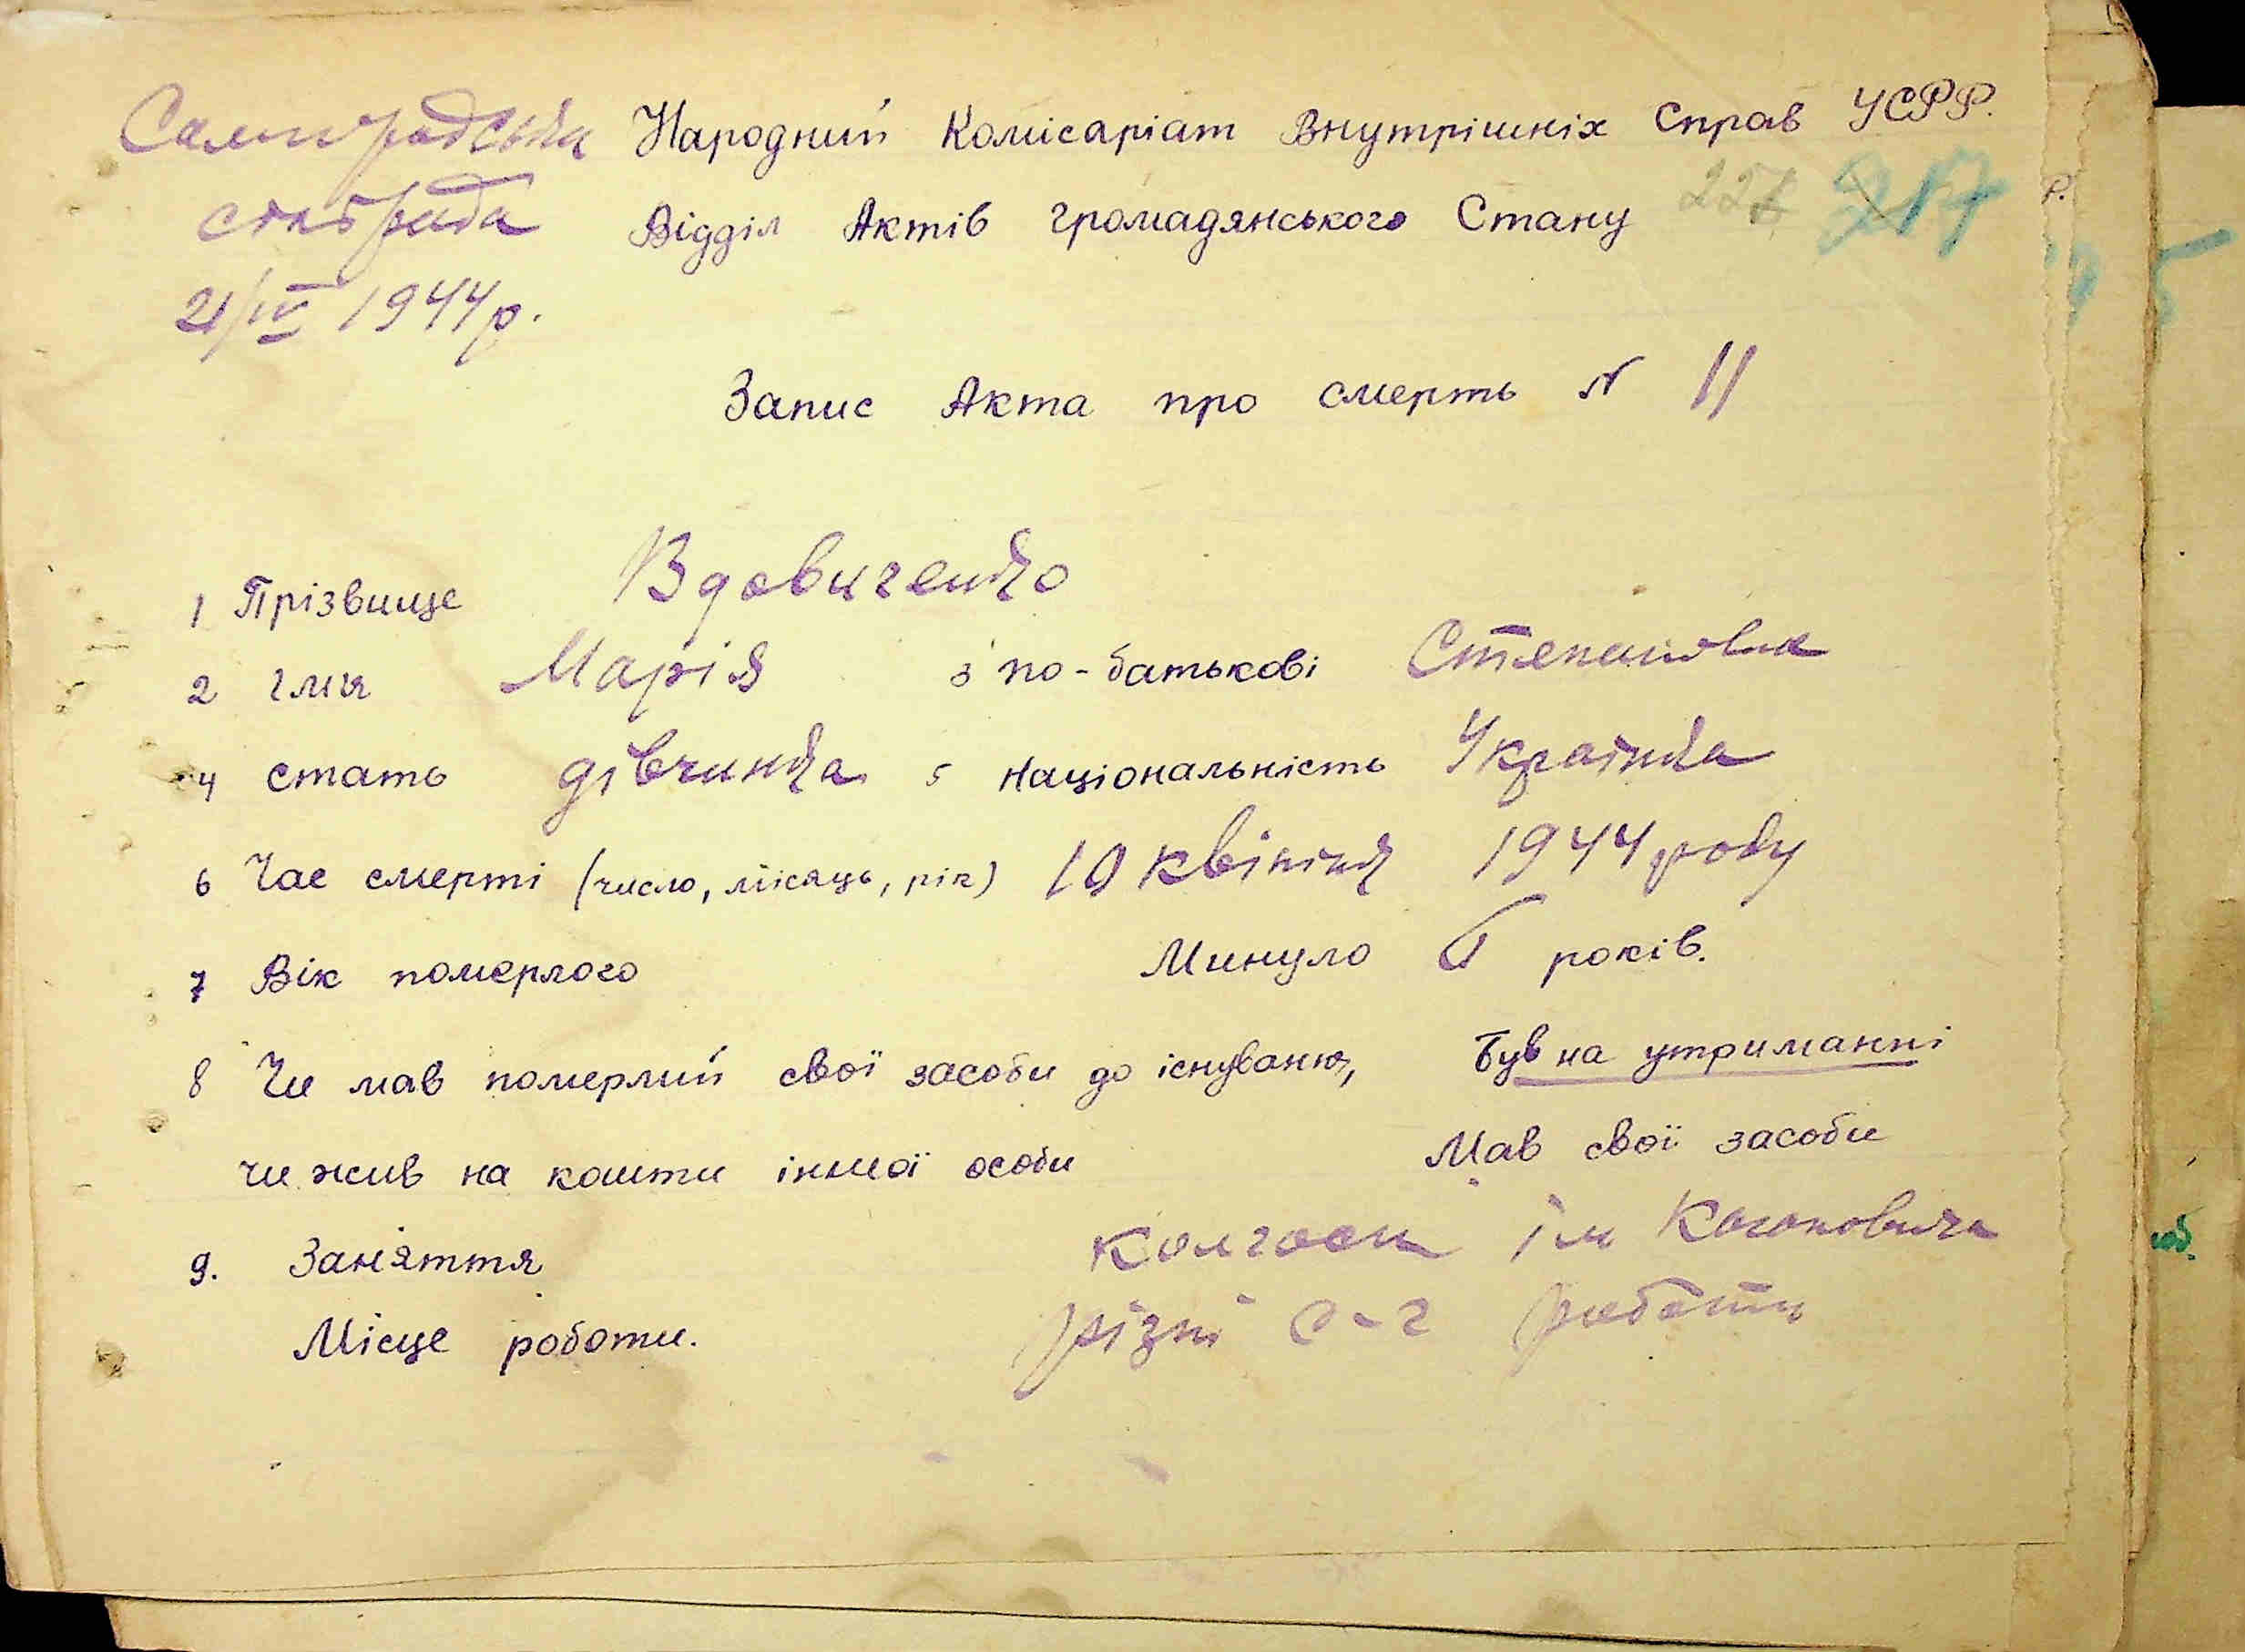 Самгородська Народний Комісаріат Внутрішніх Справ УСРР.
сільрада Відділ Актів Громадянського Стану 227 217
21/IV 1944 р.
Запис Акта про смерть № 11
1 Прізвище Вдовиченко
2 Імя Марія 3 по-батькові Степановна
4 стать дівчинка 5 Національність Українка
6 Час смерті (число, місяць, рік) 10 квітня 1944 року
7 Вік померлого Минуло 6 років.
8 Чи мав померлий свої засоби до існування, Був на утриманні
чи жив на кошти іншої особи Мав свої засоби
9. Заняття колгосп ім Кагановича
Місце роботи. різні с-г роботи